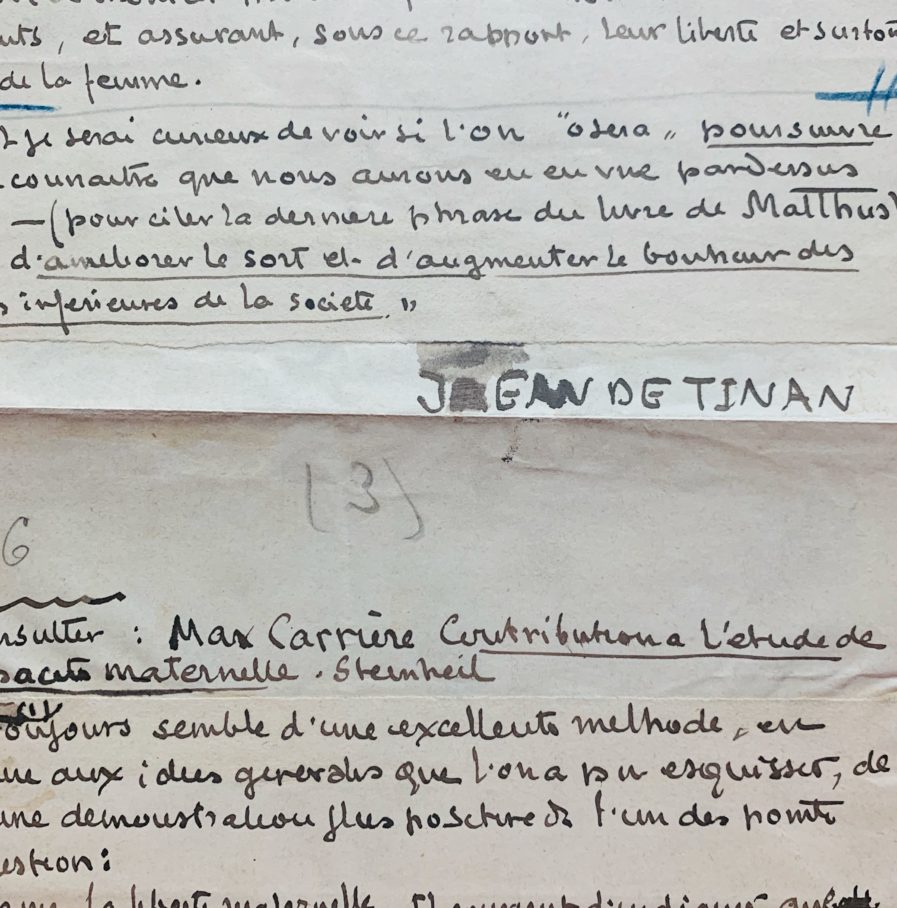 uts, et assurant, sous ce rapport, leur liberté et surtou
de la femme.
je serai curieux de voir si l'on "osera„ poursuivre
connaitre que nous aurons eu en vue pardessus
— (pour citer la derniere phrase du livre de Malthus)
d'améliorer le sort et d'augmenter le bonheur des
s inferieures de la societé.„
JEAN DE TINAN
(3)
6
nsulter : Max Carrière Contribution a l'etude de
pacité maternelle. Steinheil
toujours semblé d'une excellente methode, en
ue aux idées generales que l'on a pu esquisser, de
une demonstration plus positive de l'un des points
estion :
la liberté maternelle. Il